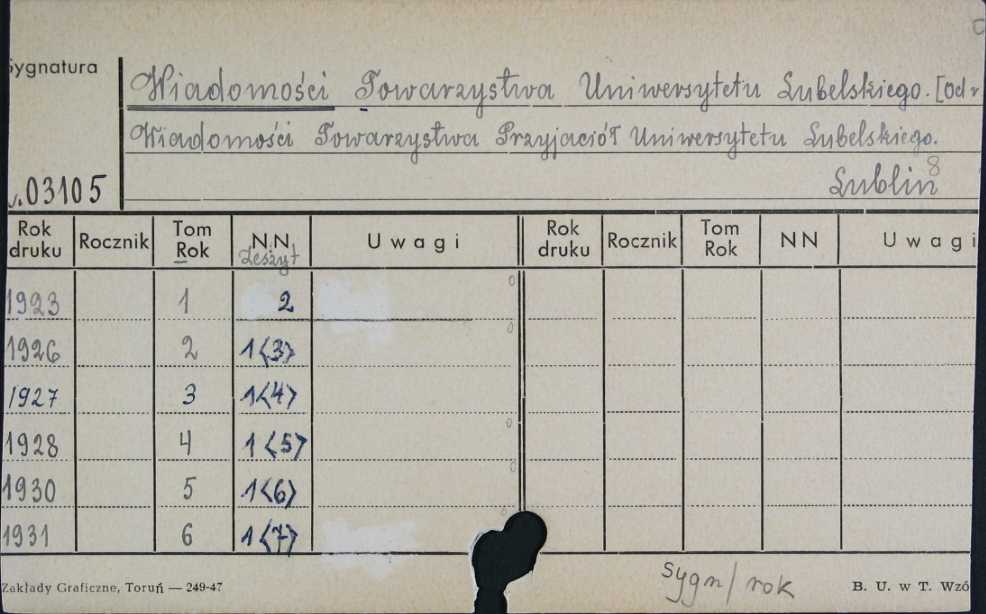 Sygnatura
Wiadomości Towarzystwa Uniwersytetu Lubelskiego. [od r.
Wiadomości Towarzystwa Przyjaciół Uniwersytetu Lubelskiego.
03105 Lublin 8
Rok druku Rocznik Tom Rok N.N. Zeszyt Uwagi Rok druku Rocznik Tom Rok NN Uwagi
1923 1 2
1926 2 1<3>
1927 3 1<4>
1928 4 1<5>
1930 5 1<6>
1931 6 1<7>
sygn/rok
Zakłady Graficzne, Toruń — 249-47 B. U. w T. Wzó